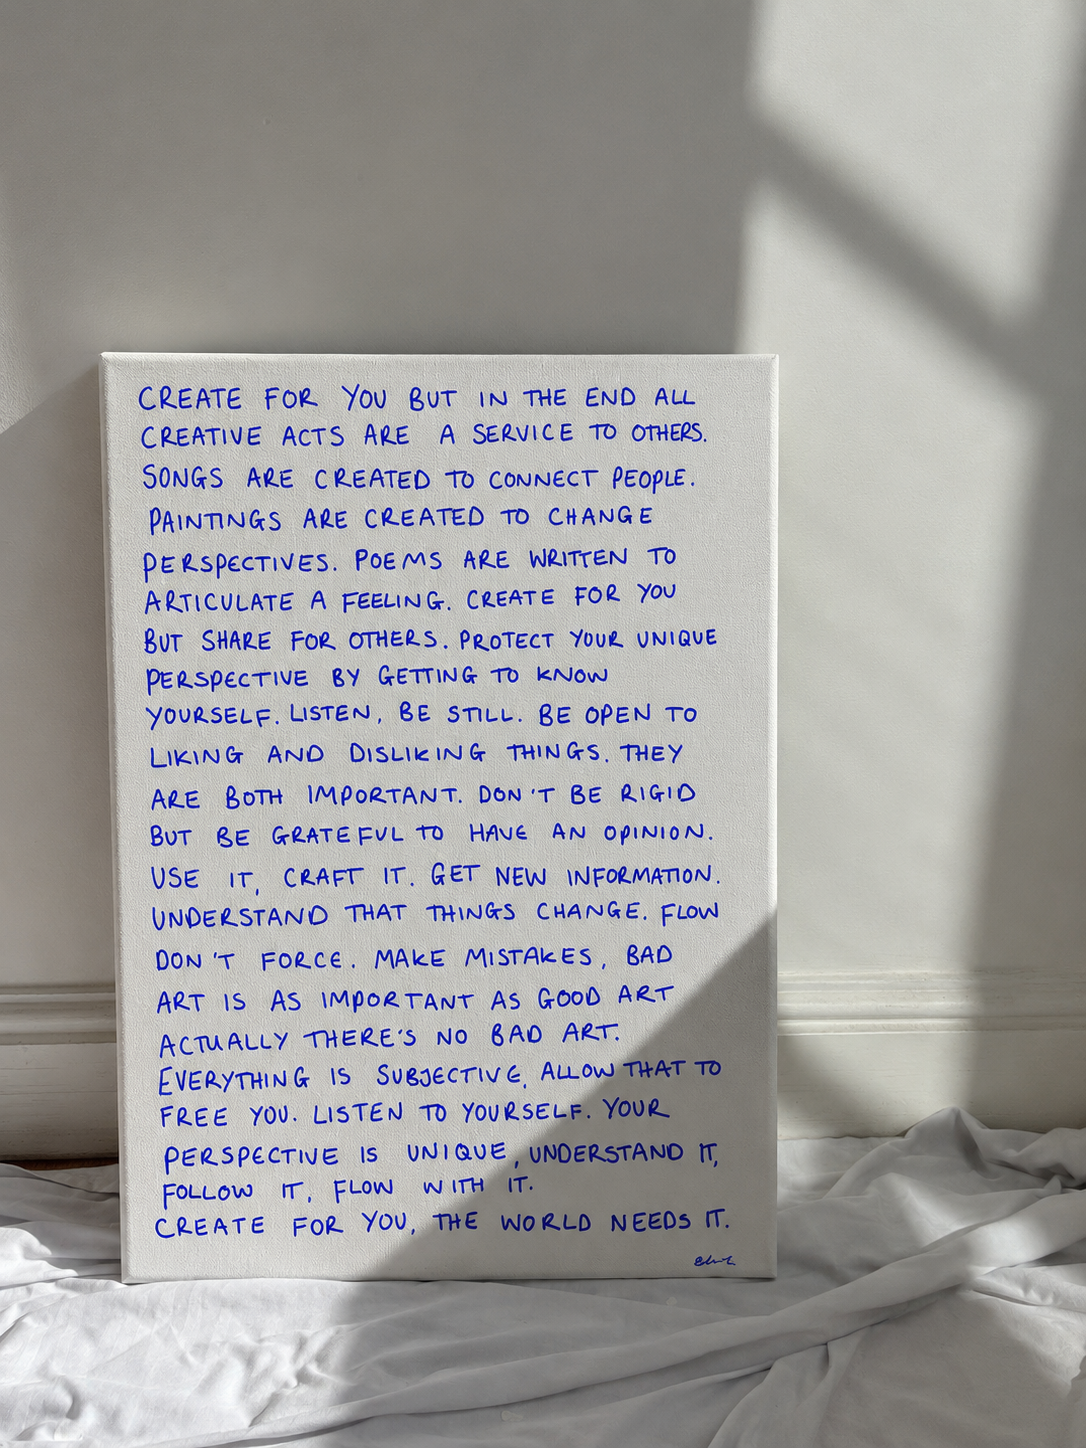 CREATE FOR YOU BUT IN THE END ALL
CREATIVE ACTS ARE A SERVICE TO OTHERS.
SONGS ARE CREATED TO CONNECT PEOPLE.
PAINTINGS ARE CREATED TO CHANGE
PERSPECTIVES. POEMS ARE WRITTEN TO
ARTICULATE A FEELING. CREATE FOR YOU
BUT SHARE FOR OTHERS. PROTECT YOUR UNIQUE
PERSPECTIVE BY GETTING TO KNOW
YOURSELF. LISTEN, BE STILL. BE OPEN TO
LIKING AND DISLIKING THINGS. THEY
ARE BOTH IMPORTANT. DON'T BE RIGID
BUT BE GRATEFUL TO HAVE AN OPINION.
USE IT, CRAFT IT. GET NEW INFORMATION.
UNDERSTAND THAT THINGS CHANGE. FLOW
DON'T FORCE. MAKE MISTAKES, BAD
ART IS AS IMPORTANT AS GOOD ART
ACTUALLY THERE'S NO BAD ART.
EVERYTHING IS SUBJECTIVE, ALLOW THAT TO
FREE YOU. LISTEN TO YOURSELF. YOUR
PERSPECTIVE IS UNIQUE, UNDERSTAND IT,
FOLLOW IT, FLOW WITH IT.
CREATE FOR YOU, THE WORLD NEEDS IT.